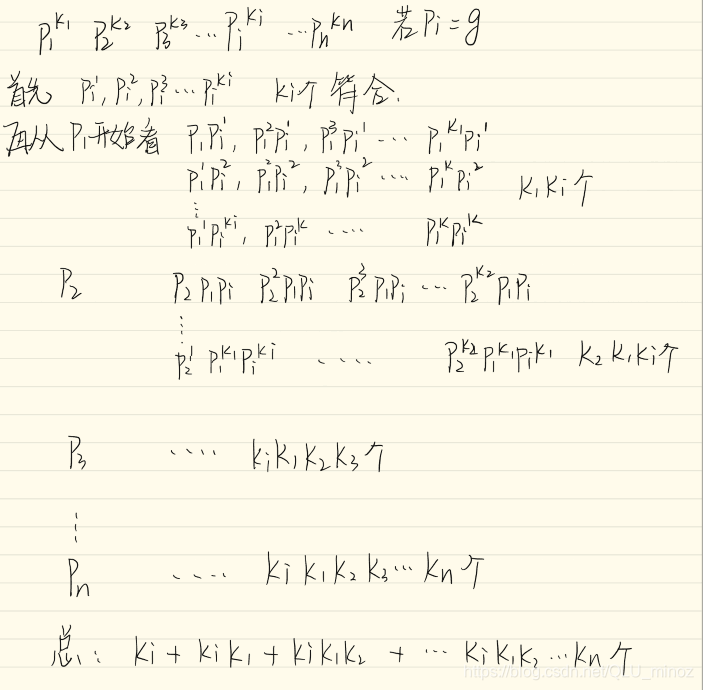 P₁^k₁ P₂^k₂ P₃^k₃ … Pi^ki … Pn^kn 若Pi=g
首先 Pi¹, Pi², Pi³ … Pi^ki ki个符合.
再从P₁开始看 P₁Pi¹, P₁²Pi¹, P₁³Pi¹ … P₁^k₁Pi¹
P₁¹Pi², P₁²Pi², P₁³Pi² … P₁^kPi² k₁ki个
⋮
P₁¹Pi^ki, P₁²Pi^k …… P₁^kPi^k
P₂ P₂P₁Pi P₂²P₁Pi P₂³P₁Pi … P₂^k₂P₁Pi
⋮
P₂¹P₁^k₁Pi^ki …… P₂^k₂P₁^k₁Pi^k₁ k₂k₁ki个
P₃ …… kik₁k₂k₃个
⋮
Pn …… kik₁k₂k₃…kn个
总: ki+kik₁+kik₁k₂+…kik₁k₂…kn个
https://blog.csdn.net/QLU_minoz